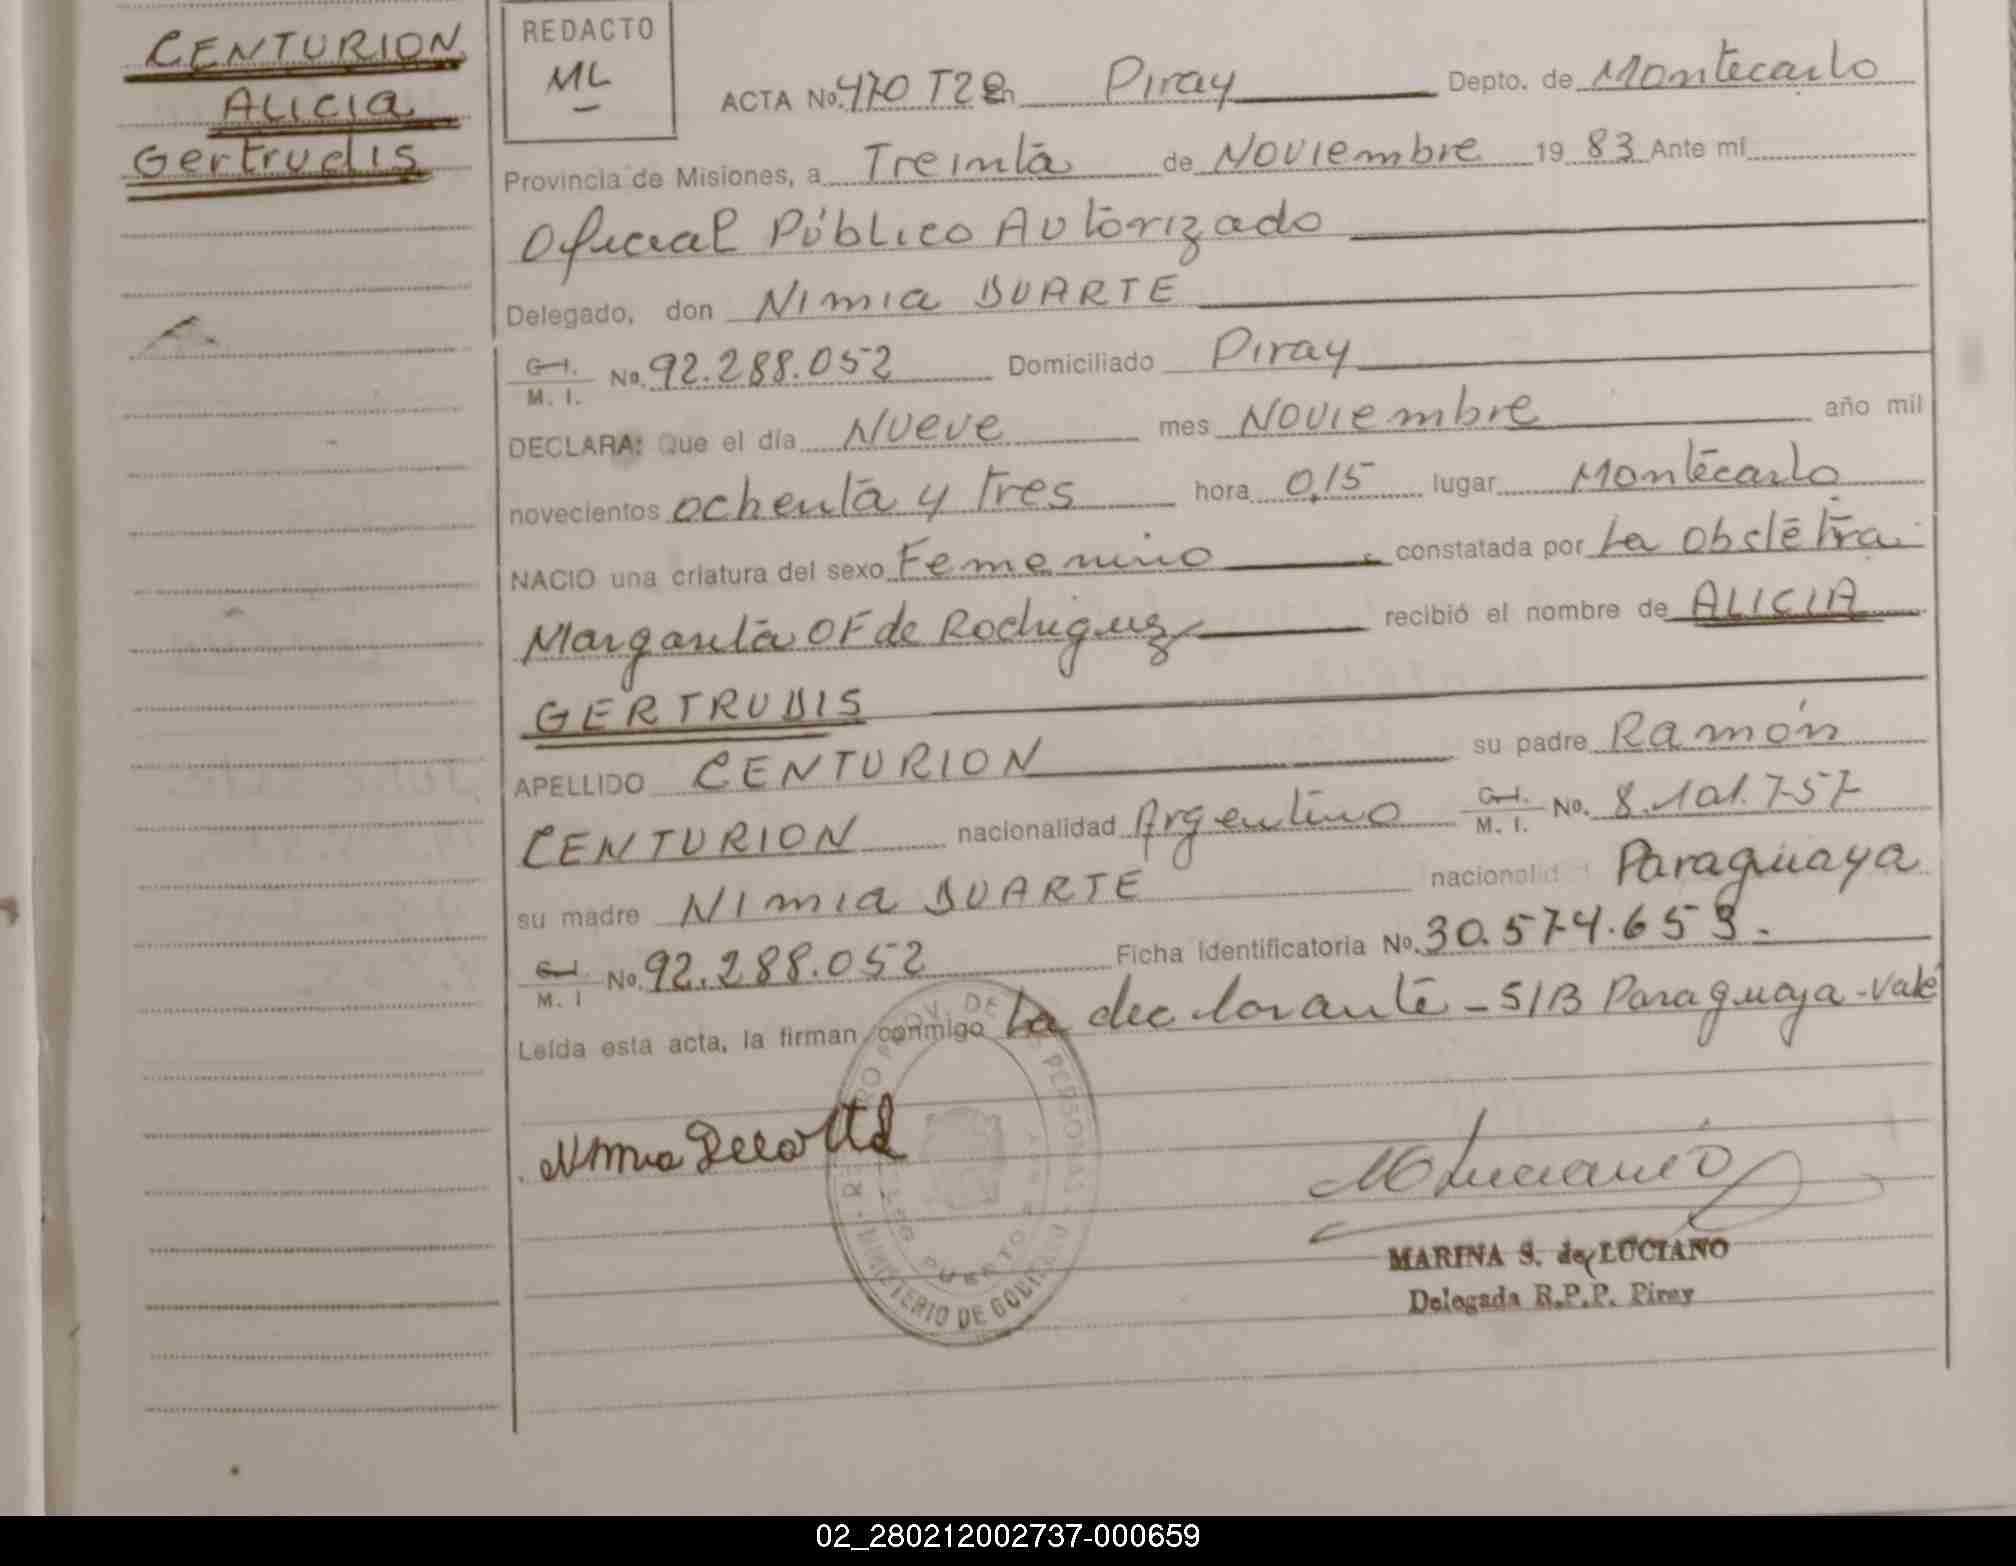 CENTURION
ALICIA
Gertrudis
REDACTO
ML
ACTA No. 470 T2 en Piray Depto. de Montecarlo
Provincia de Misiones, a Treinta de Noviembre 19 83 Ante mí
Oficial Público Autorizado
Delegado, don Nimia DUARTE
C.I. M. I. No. 92.288.052 Domiciliado Piray
DECLARA: Que el día Nueve mes Noviembre año mil
novecientos ochenta y Tres hora 0,15 lugar Montecarlo
NACIO una criatura del sexo Femenino constatada por La Obstétra
Margarita OF de Rodriguez recibió el nombre de ALICIA
GERTRUDIS
APELLIDO CENTURION su padre Ramón
CENTURION nacionalidad Argentino C.I. M. I. No. 8.101.757
su madre Nimia DUARTE nacionalid Paraguaya
C.I. M. I No. 92.288.052 Ficha identificatoria No. 30.574.653.
Leída esta acta, la firman conmigo La declarante - S/B Paraguaya - Vale
Nimia
MINISTERIO DE GOB
PERSONAS
PUERTO
MLuciano
MARINA S. de LUCIANO
Delegada R.P.P. Piray
02_280212002737-000659